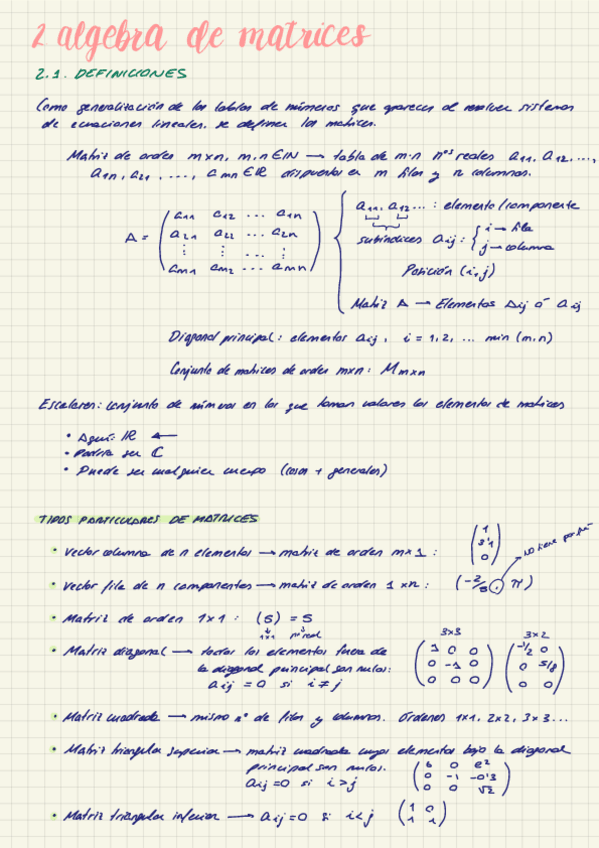 2 algebra de matrices
2.1. DEFINICIONES
Como generalización de las tablas de números que aparecen al resolver sistemas
de ecuaciones lineales, se definen las matrices.
Matriz de orden m×n, m,n ∈ IN → tabla de m·n nºs reales a11, a12, ...,
a1n, a21, ..., amn ∈ IR dispuestos en m filas y n columnas.
A = ( a11 a12 ... a1n
a21 a22 ... a2n
⋮ ⋮ ... ⋮
am1 am2 ... amn )
a11, a12 ... : elemento/componente
subíndices aij : { i → fila
j → columna
Posición (i,j)
Matriz A → Elementos Aij ó aij
Diagonal principal: elementos aij, i = 1,2, ... min (m,n)
Conjunto de matrices de orden m×n: Mm×n
Escalares: conjunto de números en los que toman valores los elementos de matrices
• Aquí: IR ←
• Podría ser C
• Puede ser cualquier cuerpo (cosas + generales)
TIPOS PARTICULARES DE MATRICES
• Vector columna de n elementos → matriz de orden m×1 : ( 1
3'1
0 )
no tiene por qué
• Vector fila de n componentes → matriz de orden 1×n : (-2/5 . π)
• Matriz de orden 1×1 : (5) = 5
1×1 nº real
• Matriz diagonal → todos los elementos fuera de
la diagonal principal son nulos:
aij = 0 si i ≠ j
3×3
( 1 0 0
0 -1 0
0 0 0 )
3×2
( -1/2 0
0 5/8
0 0 )
• Matriz cuadrada → mismo nº de filas y columnas. Órdenes 1×1, 2×2, 3×3...
• Matriz triangular superior → matriz cuadrada cuyos elementos bajo la diagonal
principal son nulos.
aij = 0 si i > j
( 6 0 e²
0 -1 -0'3
0 0 √2 )
• Matriz triangular inferior → aij = 0 si i < j
( 1 0
1 i )